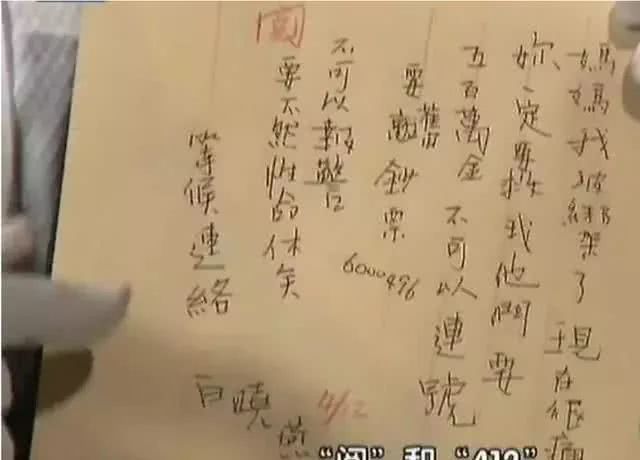 媽媽我被綁架了現在很痛
妳一定要救我他們要
五百萬金不可以連號
要舊鈔票
6000496
不可以報警
要不然性命休矣
等候連絡
白曉燕
4/12
“阅”和“412”